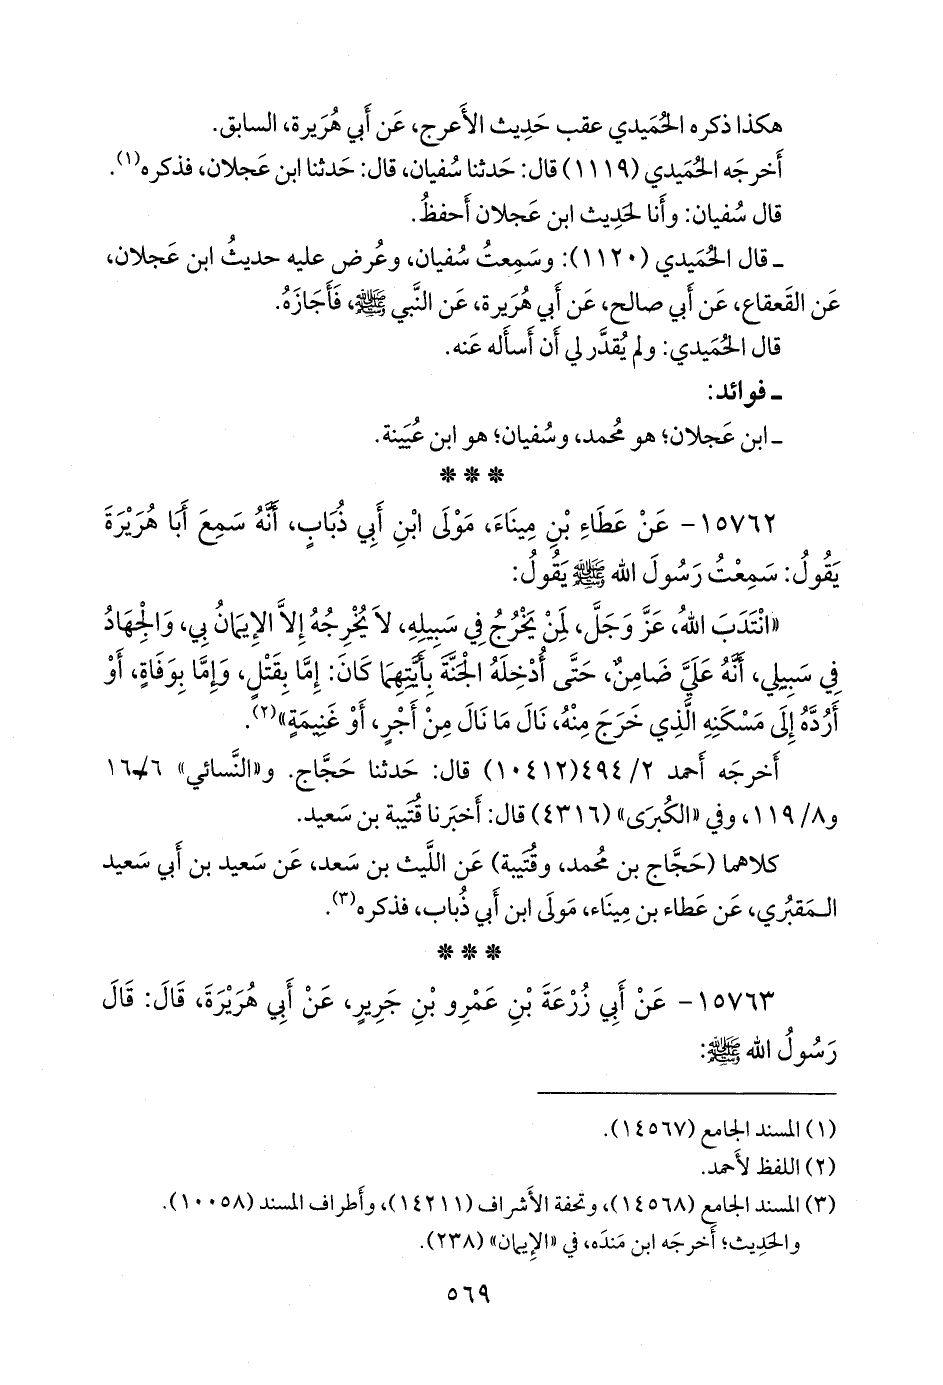 هكذا ذكره الحُمَيدي عقب حَدِيث الأَعرج، عَن أَبي هُرَيرة، السابق.
أَخرجَه الحُمَيدي (١١١٩) قال: حَدثنا سُفيان، قال: حَدثنا ابن عَجلان، فذكره(١).
قال سُفيان: وأَنا لحَدِيث ابن عَجلان أَحفظُ.
ـ قال الحُمَيدي (١١٢٠): وسَمِعتُ سُفيان، وعُرض عليه حديثُ ابن عَجلان،
عَن القَعقاع، عَن أَبي صالح، عَن أَبي هُرَيرة، عَن النَّبي ﷺ، فَأَجَازَهُ.
قال الحُمَيدي: ولم يُقدَّر لي أَن أَسأَله عَنه.
ـ فوائد:
ـ ابن عَجلان؛ هو مُحمد، وسُفيان؛ هو ابن عُيَينة.
* * *
١٥٧٦٢- عَنْ عَطَاءِ بْنِ مِينَاءَ، مَوْلَى ابْنِ أَبِي ذُبَابٍ، أَنَّهُ سَمِعَ أَبَا هُرَيْرَةَ
يَقُولُ: سَمِعْتُ رَسُولَ الله ﷺ يَقُولُ:
«انْتَدَبَ اللهُ، عَزَّ وَجَلَّ، لِمَنْ يَخْرُجُ فِي سَبِيلِهِ، لاَ يُخْرِجُهُ إِلاَّ الإِيمَانُ بِي، وَالْجِهَادُ
فِي سَبِيلِي، أَنَّهُ عَلَيَّ ضَامِنٌ، حَتَّى أُدْخِلَهُ الْجَنَّةَ بِأَيَّتِهِمَا كَانَ: إِمَّا بِقَتْلٍ، وَإِمَّا بِوَفَاةٍ، أَوْ
أَرُدَّهُ إِلَى مَسْكَنِهِ الَّذِي خَرَجَ مِنْهُ، نَالَ مَا نَالَ مِنْ أَجْرٍ، أَوْ غَنِيمَةٍ»(٢).
أَخرجَه أَحمد ٢/ ٤٩٤(١٠٤١٢) قال: حَدثنا حَجَّاج. و«النَّسائي» ٦/ ١٦
و٨/ ١١٩، وفي «الكُبرَى» (٤٣١٦) قال: أَخبَرنا قُتَيبة بن سَعيد.
كلاهما (حَجَّاج بن مُحمد، وقُتَيبة) عَن اللَّيث بن سَعد، عَن سَعيد بن أَبي سَعيد
المَقبُري، عَن عَطاء بن مِيناء، مَولَى ابن أَبي ذُباب، فذكره(٣).
* * *
١٥٧٦٣- عَنْ أَبِي زُرْعَةَ بْنِ عَمْرِو بْنِ جَرِيرٍ، عَنْ أَبِي هُرَيْرَةَ، قَالَ: قَالَ
رَسُولُ الله ﷺ:
(١) المسند الجامع (١٤٥٦٧).
(٢) اللفظ لأَحمد.
(٣) المسند الجامع (١٤٥٦٨)، وتحفة الأَشراف (١٤٢١١)، وأَطراف المسند (١٠٠٥٨).
والحَدِيث؛ أَخرجَه ابن مَندَه، في «الإِيمان» (٢٣٨).
٥٦٩